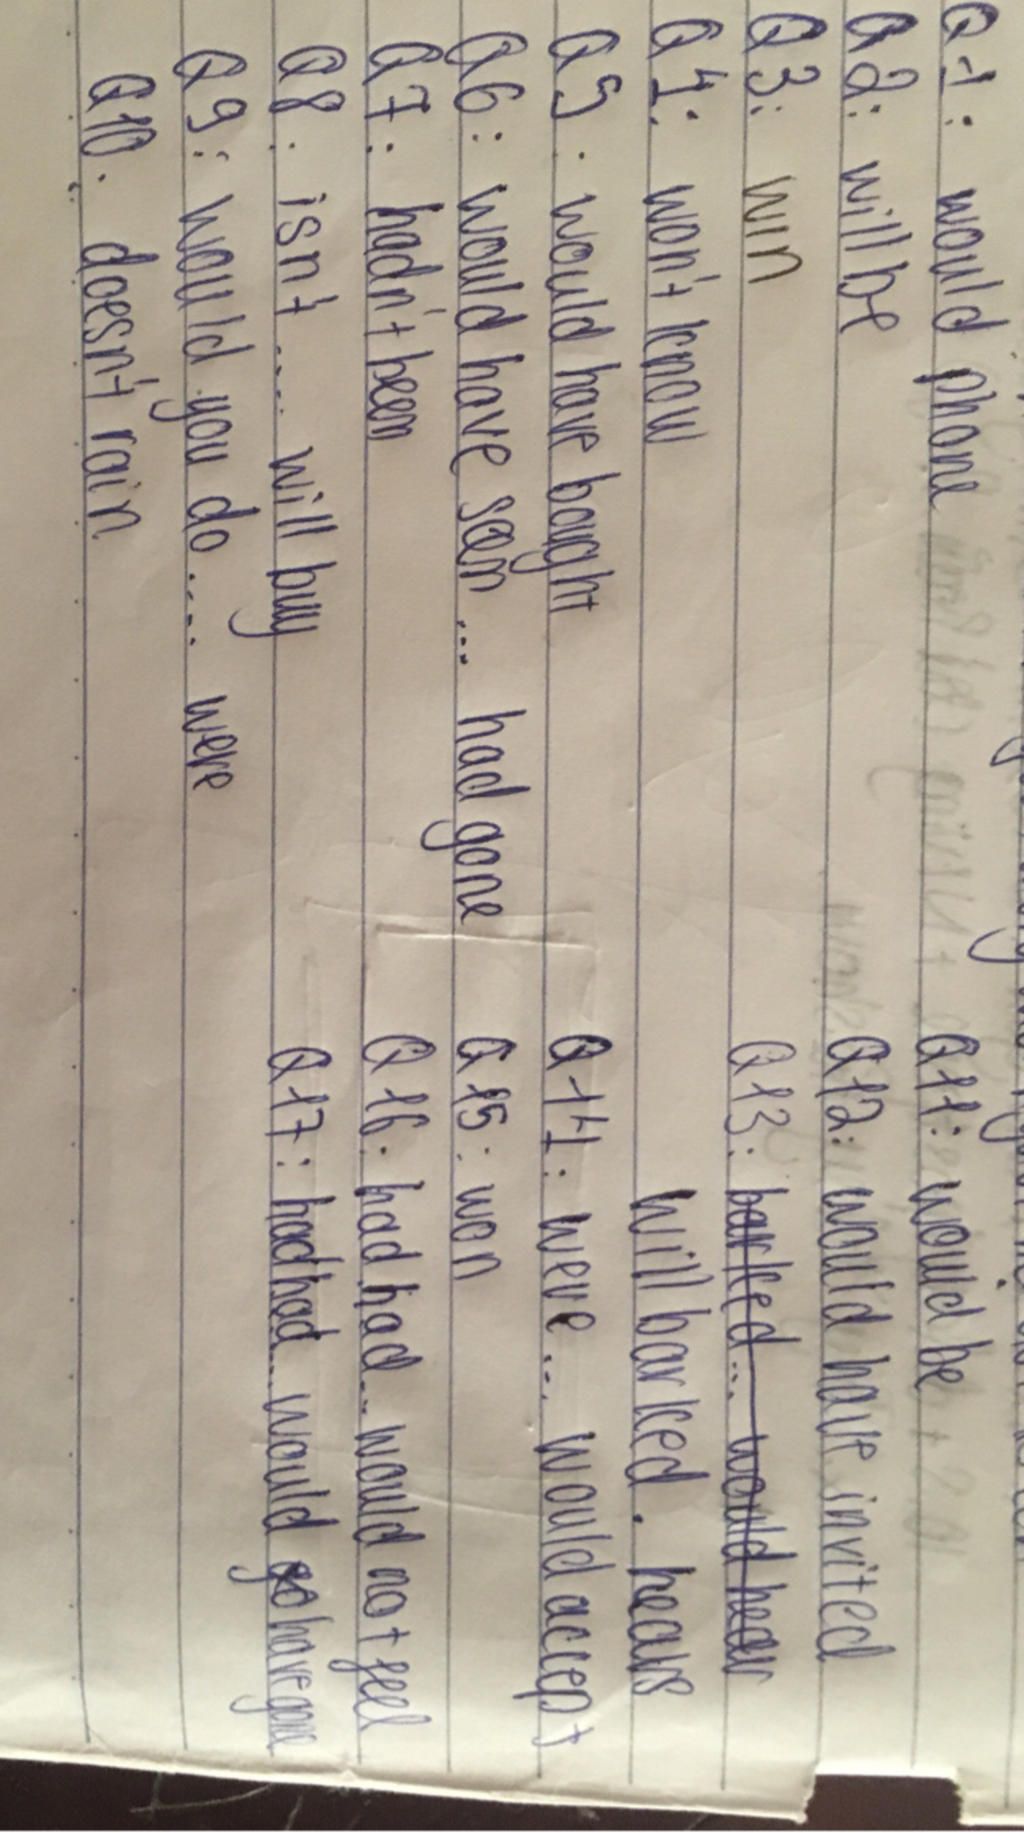 Q1: would phone
Q2: will be
Q3: win
Q4: won't know
Q5: would have bought
Q6: would have seen ... had gone
Q7: hadn't been
Q8: isn't .... will buy
Q9: would you do ..... were
Q10. doesn't rain
Q11: would be
Q12: would have invited
Q13: barked ... would hear
will barked. hears
Q14: were ... would accept
Q15: won
Q16: had had ... would not feel
Q17: had had ... would go have gone